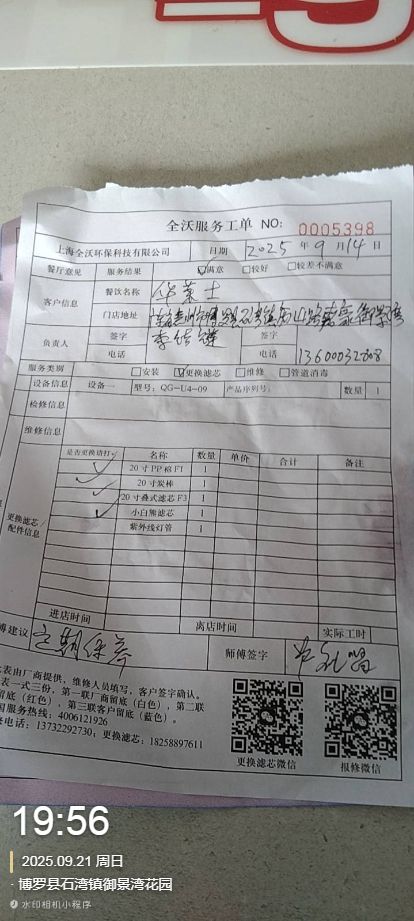 全沃服务工单 NO: 0005398
上海全沃环保科技有限公司 日期 2025 年 9 月 14 日
餐厅意见 服务结果 ☑满意 □较好 □较差不满意
客户信息 餐饮名称 华莱士
门店地址
负责人 签字 签字
电话 电话
服务类别 □安装 ☑更换滤芯 □维修 □管道消毒
设备信息 设备一 型号:QG-U4-09 产品序列号: 数量 1
检修信息
维修信息
更换滤芯/配件信息
是否更换请打✓ 名称 数量 单价 合计 备注
✓ 20寸PP棉F1 1
✓ 20寸炭棒 1
✓ 20寸叠式滤芯F3 1
✓ 小白熊滤芯 1
紫外线灯管 1
进店时间 离店时间 实际工时
傅建议 定期保养 师傅签字
表由厂商提供,维修人员填写,客户签字确认。
表一式三份,第一联厂商留底(白色),第二联
留底(红色),第三联客户留底(蓝色)。
国服务热线:4006121926
电话:13732292730;更换滤芯:18258897611
更换滤芯微信 报修微信
19:56
2025.09.21 周日
·博罗县石湾镇御景湾花园
水印相机小程序